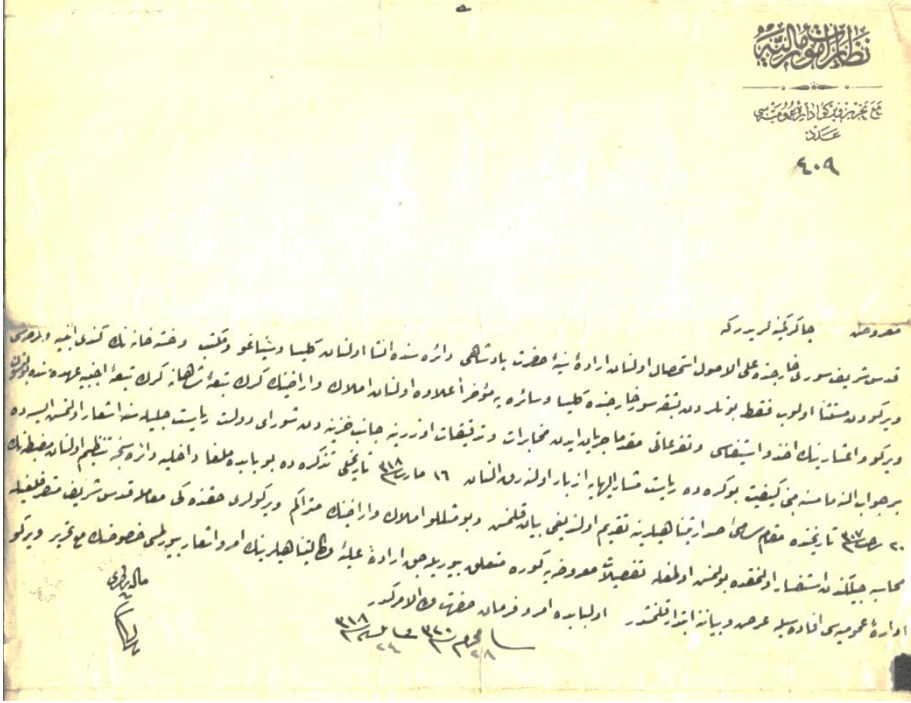 نظارت امور مالیه
مع تحریر ویرکو اداره عمومیه سی
عدد
٤٠٩
معروض چاکر کمینه لریدر که
قدس شریف سوری خارجنده علی الاصول استحصال اولنان ارادهٔ سنیهٔ حضرت پادشاهی دائره سنده انشا اولنان کلیسا و مکتب و خسته خانه نك کندی ابنیه
ویرکودن مستثنا اولوب فقط بونلردن بشقه سور خارجنده کلیسا وسائره یه مؤخراً علاوه اولنان املاك واراضینك کرك تبعهٔ شاهانه کرك تبعهٔ اجنبیه عهده سنده
ویرکو واعشارینك اخذ واستیفاسی وتفرعاتی مقدما جریان ایدن مخابرات وتدقیقات اوزرینه جانب خزینه دن شورای دولت ریاست جلیله سنه اشعار اولنمش ایسه ده
بر جواب النه مامسنه مبنی کیفیت بو کره ده ریاست مشار الیهایه ازبار اولنه رق النان ١٦ مارت ٣١٨ تاریخلی تذکره ده بو بابده داخلیه دائره سنجه تنظیم اولنان مضبطه نك
٢٠ تاریخنده مقام سامئ صدارتپناهیلرینه تقدیم اولندیغی بیان قلنمش و بو مثللو املاك واراضینك متراکم ویرکولری حقنده کی معامله قدس شریف متصرفلغیله
محاسبه جیلکندن استفسار اولنمقده بولنمش اولمغله تفصیلات معروضه یه کوره متعلق بیوریله جق ارادهٔ علیهٔ وکالتپناهیلرینك امر واشعار بیورلمسی خصوصنك مع تحریر ویرکو
ادارهٔ عمومیه سی افاده سیله عرض و بیاننه ابتدار قلنمشدر اولبابده امر و فرمان حضرت من له الامرکدر
فی ٢٨ محرم ٣٢٠ و فی ٢٤ ٣١٨
مالیه ناظری